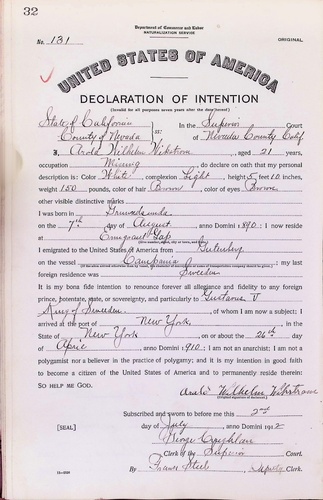 32
Department of Commerce and Labor
NATURALIZATION SERVICE
No. 131
ORIGINAL
UNITED STATES OF AMERICA
DECLARATION OF INTENTION
(Invalid for all purposes seven years after the date hereof)
State of California
County of Nevada
ss:
In the Superior Court
of Nevada County, Calif
I, Wilhelm, aged 21 years,
occupation Mining, do declare on oath that my personal
description is: Color White, complexion Light, height 5 feet 10 inches,
weight 150 pounds, color of hair Brown, color of eyes Brown
other visible distinctive marks
I was born in
on the 7th day of August, anno Domini 1890; I now reside
at Emigrant Gap
(Give number, street, city or town, and State.)
I emigrated to the United States of America from
on the vessel Campania; my last
foreign residence was Sweden
It is my bona fide intention to renounce forever all allegiance and fidelity to any foreign
prince, potentate, state, or sovereignty, and particularly to Gustavus V
King of Sweden, of whom I am now a subject; I
arrived at the port of New York, in the
State of New York on or about the 26th day
of April, anno Domini 1910; I am not an anarchist; I am not a
polygamist nor a believer in the practice of polygamy; and it is my intention in good faith
to become a citizen of the United States of America and to permanently reside therein:
SO HELP ME GOD.
Wilhelm
(Original signature of declarant.)
Subscribed and sworn to before me this 2nd
[SEAL] day of July, anno Domini 1912
Clerk of the Superior Court.
By Steel, Deputy Clerk.